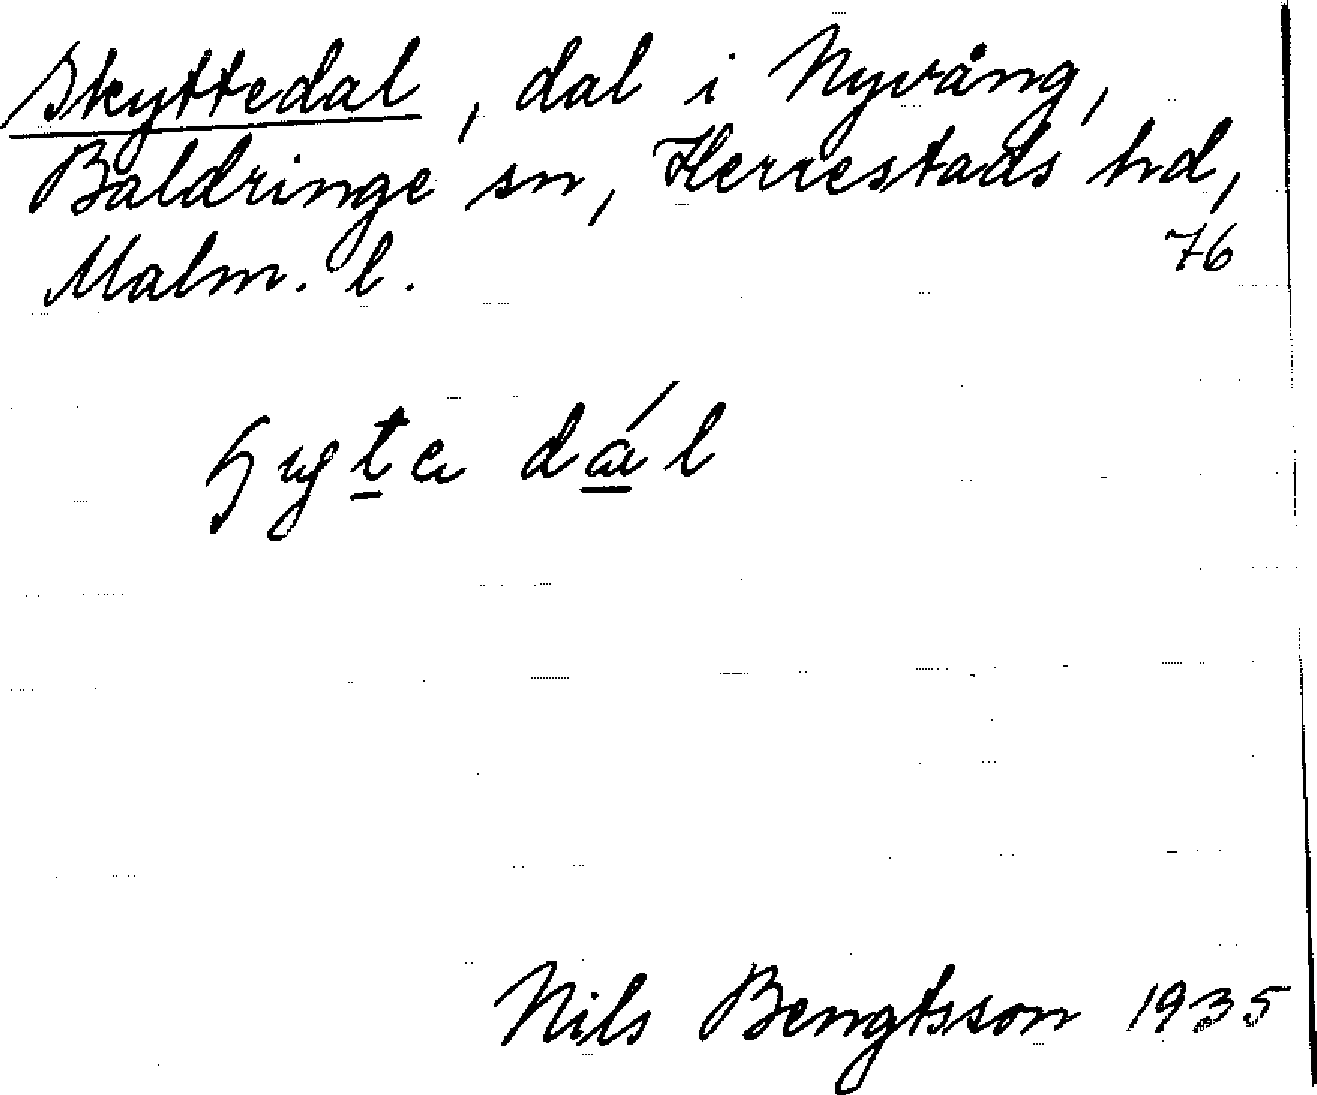 Skyttedal, dal i Nyvång,
Baldringe sn, Herrestads hd,
Malm. l. 76
Nils Bengtsson 1935